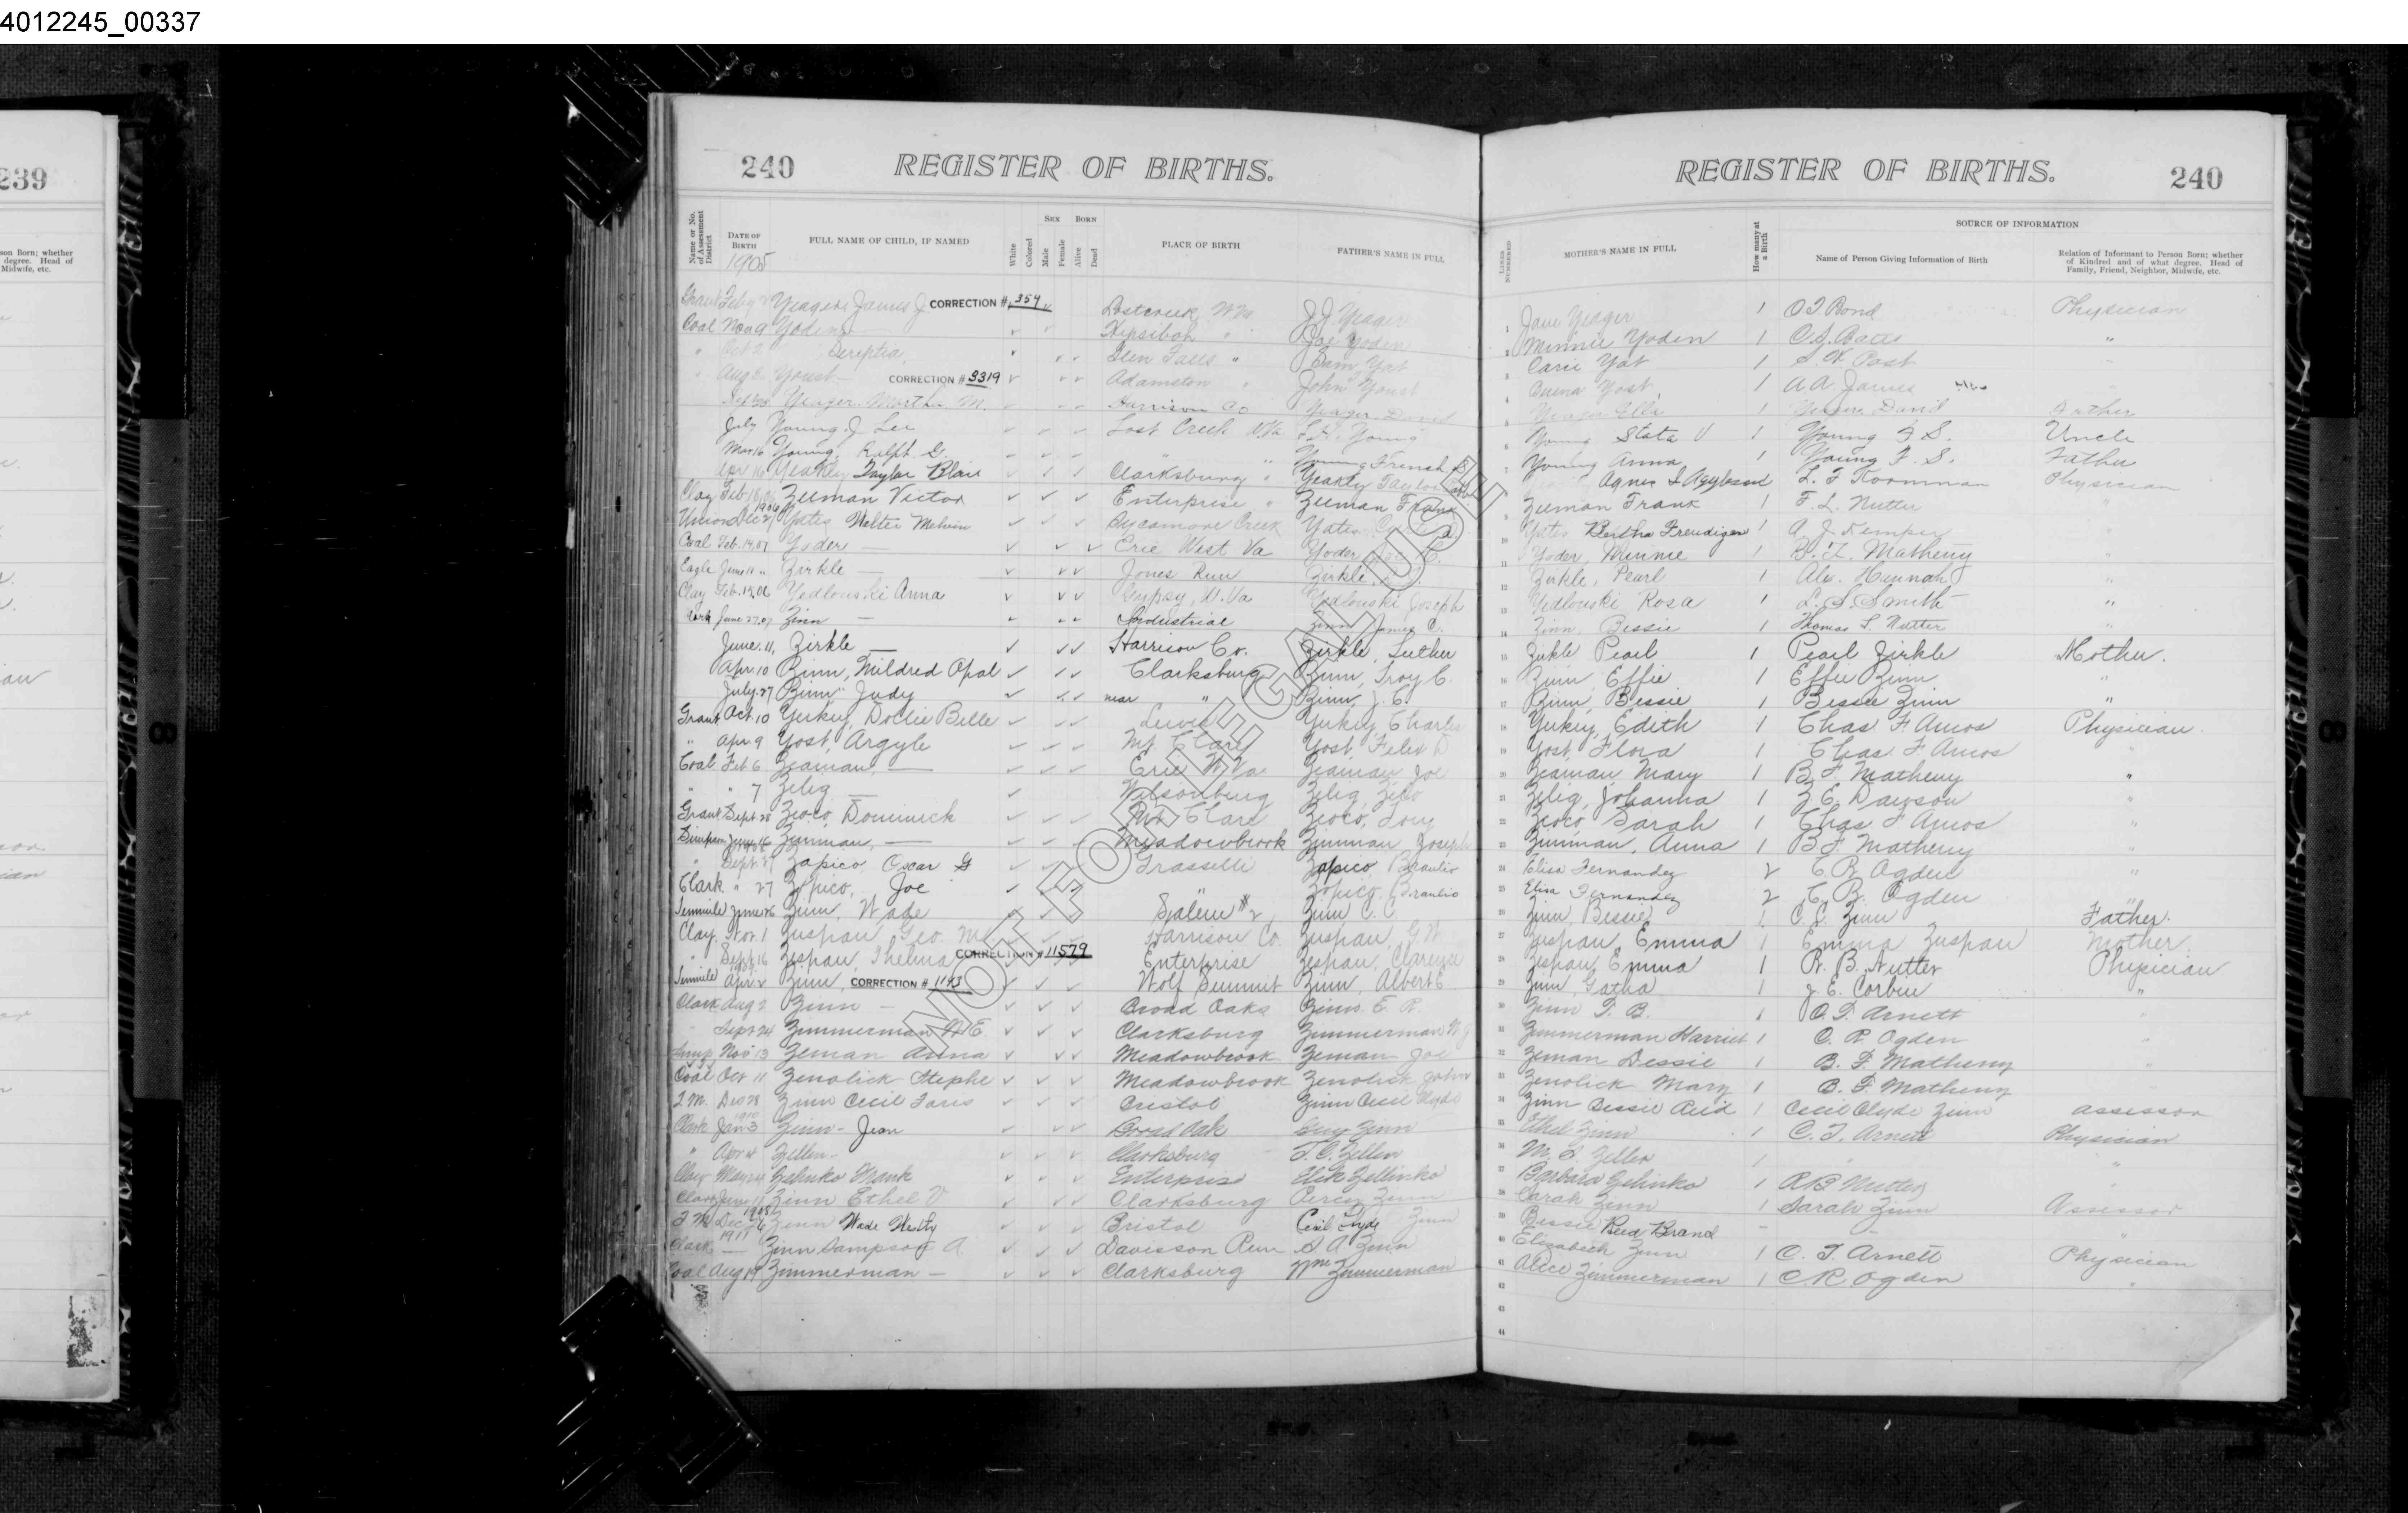 4012245_00337
239
son Born; whether
degree. Head of
Midwife, etc.
240 REGISTER OF BIRTHS.
Name or No. of Assessment District
DATE OF BIRTH
1905
FULL NAME OF CHILD, IF NAMED
White
Colored
SEX
Male
Female
BORN
Alive
Dead
PLACE OF BIRTH
FATHER'S NAME IN FULL
Grant Yeager James J CORRECTION # 354 Lostcreek W Va J.J. Yeager
Coal Nov 9 Yoden — Hepsibah " Joe Yoden
" Oct 2 Glen Falls " Sam Yat
" Aug Youst — CORRECTION # 3319 Adamston " John Youst
Yeager Martha M. Harrison Co Yeager David
July Young J Lee Lost Creek W.Va Young
Mar 16 Young, Ralph G. " " Young French S
Apr 16 Yeakley Taylor Blair Clarksburg " Yeakley Taylor
Clay Feb 18 Zeeman Victor Enterprise " Zeeman Frank
Union Dec 2 1906 Yates Walter Melvin Sycamore Creek Yates
Coal Feb. 14, 07 Yoder — Erie West Va Yoder
Eagle June 11 " Zirkle — Jones Run Zirkle
Clay Feb. 15, 06 Yedlouski Anna Gypsy, W.Va Yedlouski Joseph
Clark June 27, 07 Zinn — Industrial Zinn James C.
June. 11, Zirkle — Harrison Co. Zirkle, Luther
Apr. 10 Zinn, Mildred Opal Clarksburg Zinn, Troy C.
July. 27 Zinn Judy near " Zinn, J. C.
Grant Oct. 10 Yerkey, Dollie Belle Yerkey Charles
" Apr. 9 Yost, Argyle Mt. Clare Yost Felix D
Coal Feb 6 Zeaman, — Erie W Va Zeaman Joe
" " 7 Zelig — Wilsonburg Zelig
Grant Sept 28 Zeoco, Dominick Mt Clare Zeoco, Tony
Simpson June 16 Zimman, — Meadowbrook Zimman Joseph
" Sept. 27 Zapico Oscar G Grasselli Zapico Braulio
Clark " 27 Zapico, Joe " Zapico, Braulio
Tenmile June 26 Zinn, Wade Salem #2 Zinn C. C.
Clay. Nov. 1 Zuspan, Geo. M Harrison Co. Zuspan, G W
" Sept 16 Zespan, Thelma CORRECTION # 11579 Enterprise Zespan, Clarence
Tenmile 1909 Apr 2 Zinn, CORRECTION # 1143 Wolf Summit Zinn, Albert E
Clark Aug 2 Zinn — Broad Oaks Zinn E. R.
" Sept 24 Zimmerman N E Clarksburg Zimmerman W J
Simp Nov 13 Zeman Anna Meadowbrook Zeman Joe
Coal Oct 11 Zenolick Stephe Meadowbrook Zenolick John
T.M. Dec 28 Zinn Cecil Faris Bristol Zinn Cecil Clyde
Clark 1910 Jan 3 Zinn - Jean Broad Oak Guy Zinn
" Apr 4 Zellen - Clarksburg T. C. Zellen
Clay May 24 Zelinko Mank Enterprise Elik Zellinko
Clark June 11 Zinn Ethel V Clarksburg Percy Zinn
T M 1905 Dec 4 Zinn Wade Westy Bristol Cecil Clyde Zinn
Clark 1911 — Zinn Sampson A Davisson Run S A Zinn
Coal Aug 19 Zimmerman — Clarksburg Wm Zimmerman
NOT FOR LEGAL USE
REGISTER OF BIRTHS. 240
LINES NUMBERED
MOTHER'S NAME IN FULL
How many at a Birth
SOURCE OF INFORMATION
Name of Person Giving Information of Birth
Relation of Informant to Person Born; whether of Kindred and of what degree. Head of Family, Friend, Neighbor, Midwife, etc.
1 Jane Yeager 1 O T Bond Physician
2 Minnie Yoden 1 Bates "
3 Carie Yat 1 Post
4 Emma Yost 1 A A James "
5 Yeager Ella 1 Yeager David Father
6 Young Stata V 1 Young F S. Uncle
7 Young Anna 1 Young F. S. Father
Agnes L. F Koornman Physician
9 Zeeman Frank 1 F. L. Nutter "
10 Yates Bertha Freudiger 1 A. J. Kemper "
11 Yoder Minnie 1 B. F. Matheny "
12 Zirkle, Pearl 1 Alex. Hannah "
13 Yedlouski Rosa 1 L. S. Smith "
14 Zinn, Bessie 1 Thomas L. Nutter "
15 Zirkle Pearl 1 Pearl Zirkle Mother.
16 Zinn, Effie 1 Effie Zinn "
17 Zinn, Bessie 1 Bessie Zinn "
18 Yerkey, Edith 1 Chas F Amos Physician.
19 Yost Flora 1 Chas F Amos "
20 Zeaman Mary 1 B F Matheny "
21 Zelig, Johanna 1 Z E. Dawson "
22 Zeoco Sarah 1 Chas F Amos "
23 Zimman, Anna 1 B F Matheny "
24 Elisa Fernandez 2 C. R. Ogden "
25 Elisa Fernandez 2 C. R. Ogden "
26 Zinn, Bessie 1 C. C. Zinn Father.
27 Zuspan, Emma 1 Emma Zuspan Mother.
28 Zespan, Emma 1 R. B. Nutter Physician
29 Zinn, Gatha 1 J E. Corbin "
30 Zinn D. B. 1 C. T. Arnett "
31 Zimmerman Harriet 1 C. R. Ogden "
32 Zeman Dessie 1 B. F. Matheny "
33 Zenolick Mary 1 B. F. Matheny
34 Zinn Bessie Reid 1 Cecil Clyde Zinn Assessor
35 Ethel Zinn 1 C. T. Arnett Physician
36 M. S. Zeller 1 " "
37 Barbara Zelinko 1 R B Nutter "
38 Sarah Zinn 1 Sarah Zinn Assessor
39 Bessie Reid Brand - "
40 Elizabeth Zinn 1 C. T. Arnett Physician
41 Alice Zimmerman 1 C. R. Ogden "
42
43
44